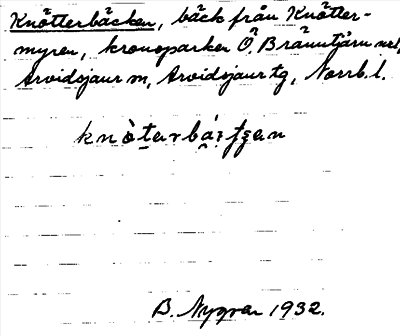 Knötterbäcken, bäck från Knötter-
myren, kronoparken Ö. Brännträsk nrl,
Arvidsjaur m, Arvidsjaur tg, Norrb. l.
knò̀tarbá
B. Nygren 1932.